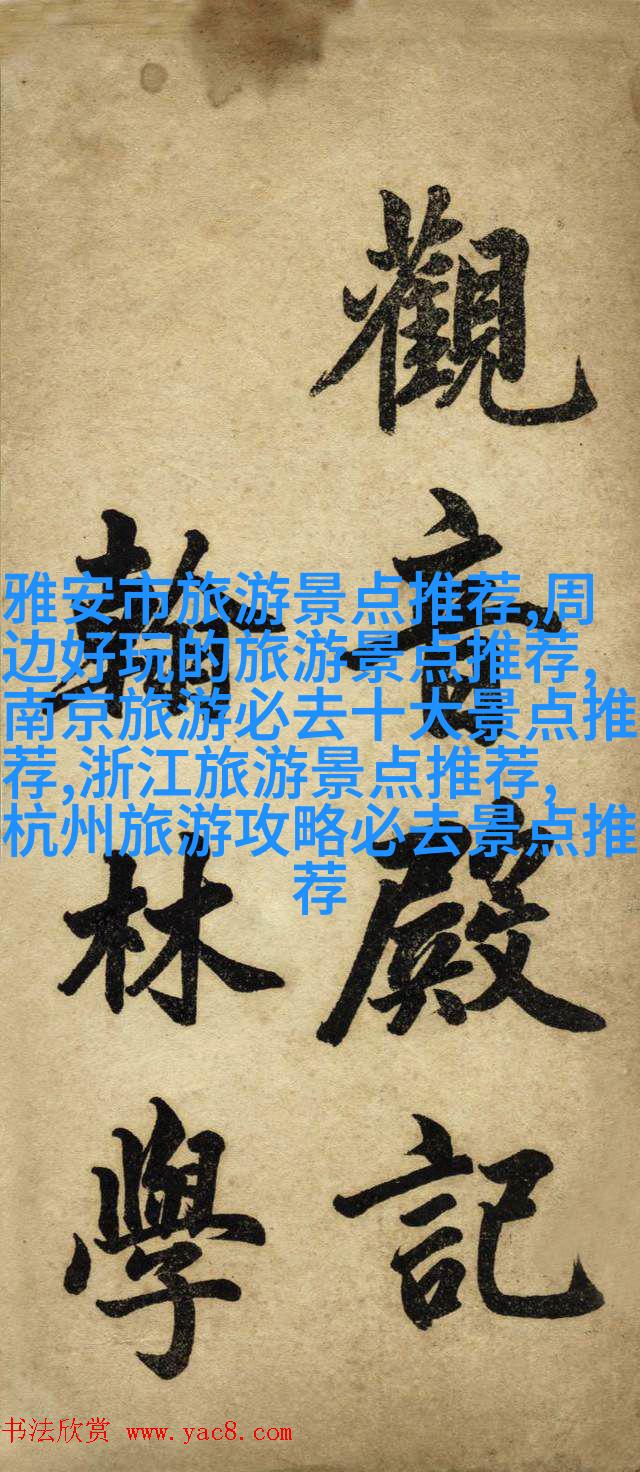 觀音殿記
翰林學
雅安市旅游景点推荐,周
边好玩的旅游景点推荐,
南京旅游必去十大景点推
荐,浙江旅游景点推荐,
杭州旅游攻略必去景点推
荐
书法欣赏 www.yac8.com